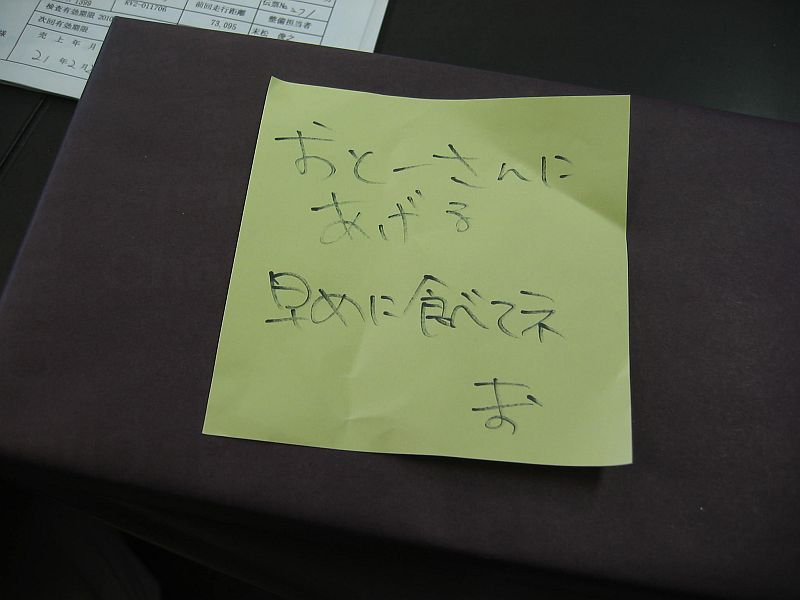 1399
RV2-011706
前回走行距離
伝票No.271
検査有効期限 2010
73,095
整備担当者
次回有効期限
末松 俊之
様
売上年月
21年2月2
おとーさんに
あげる
早めに食べてネ
お